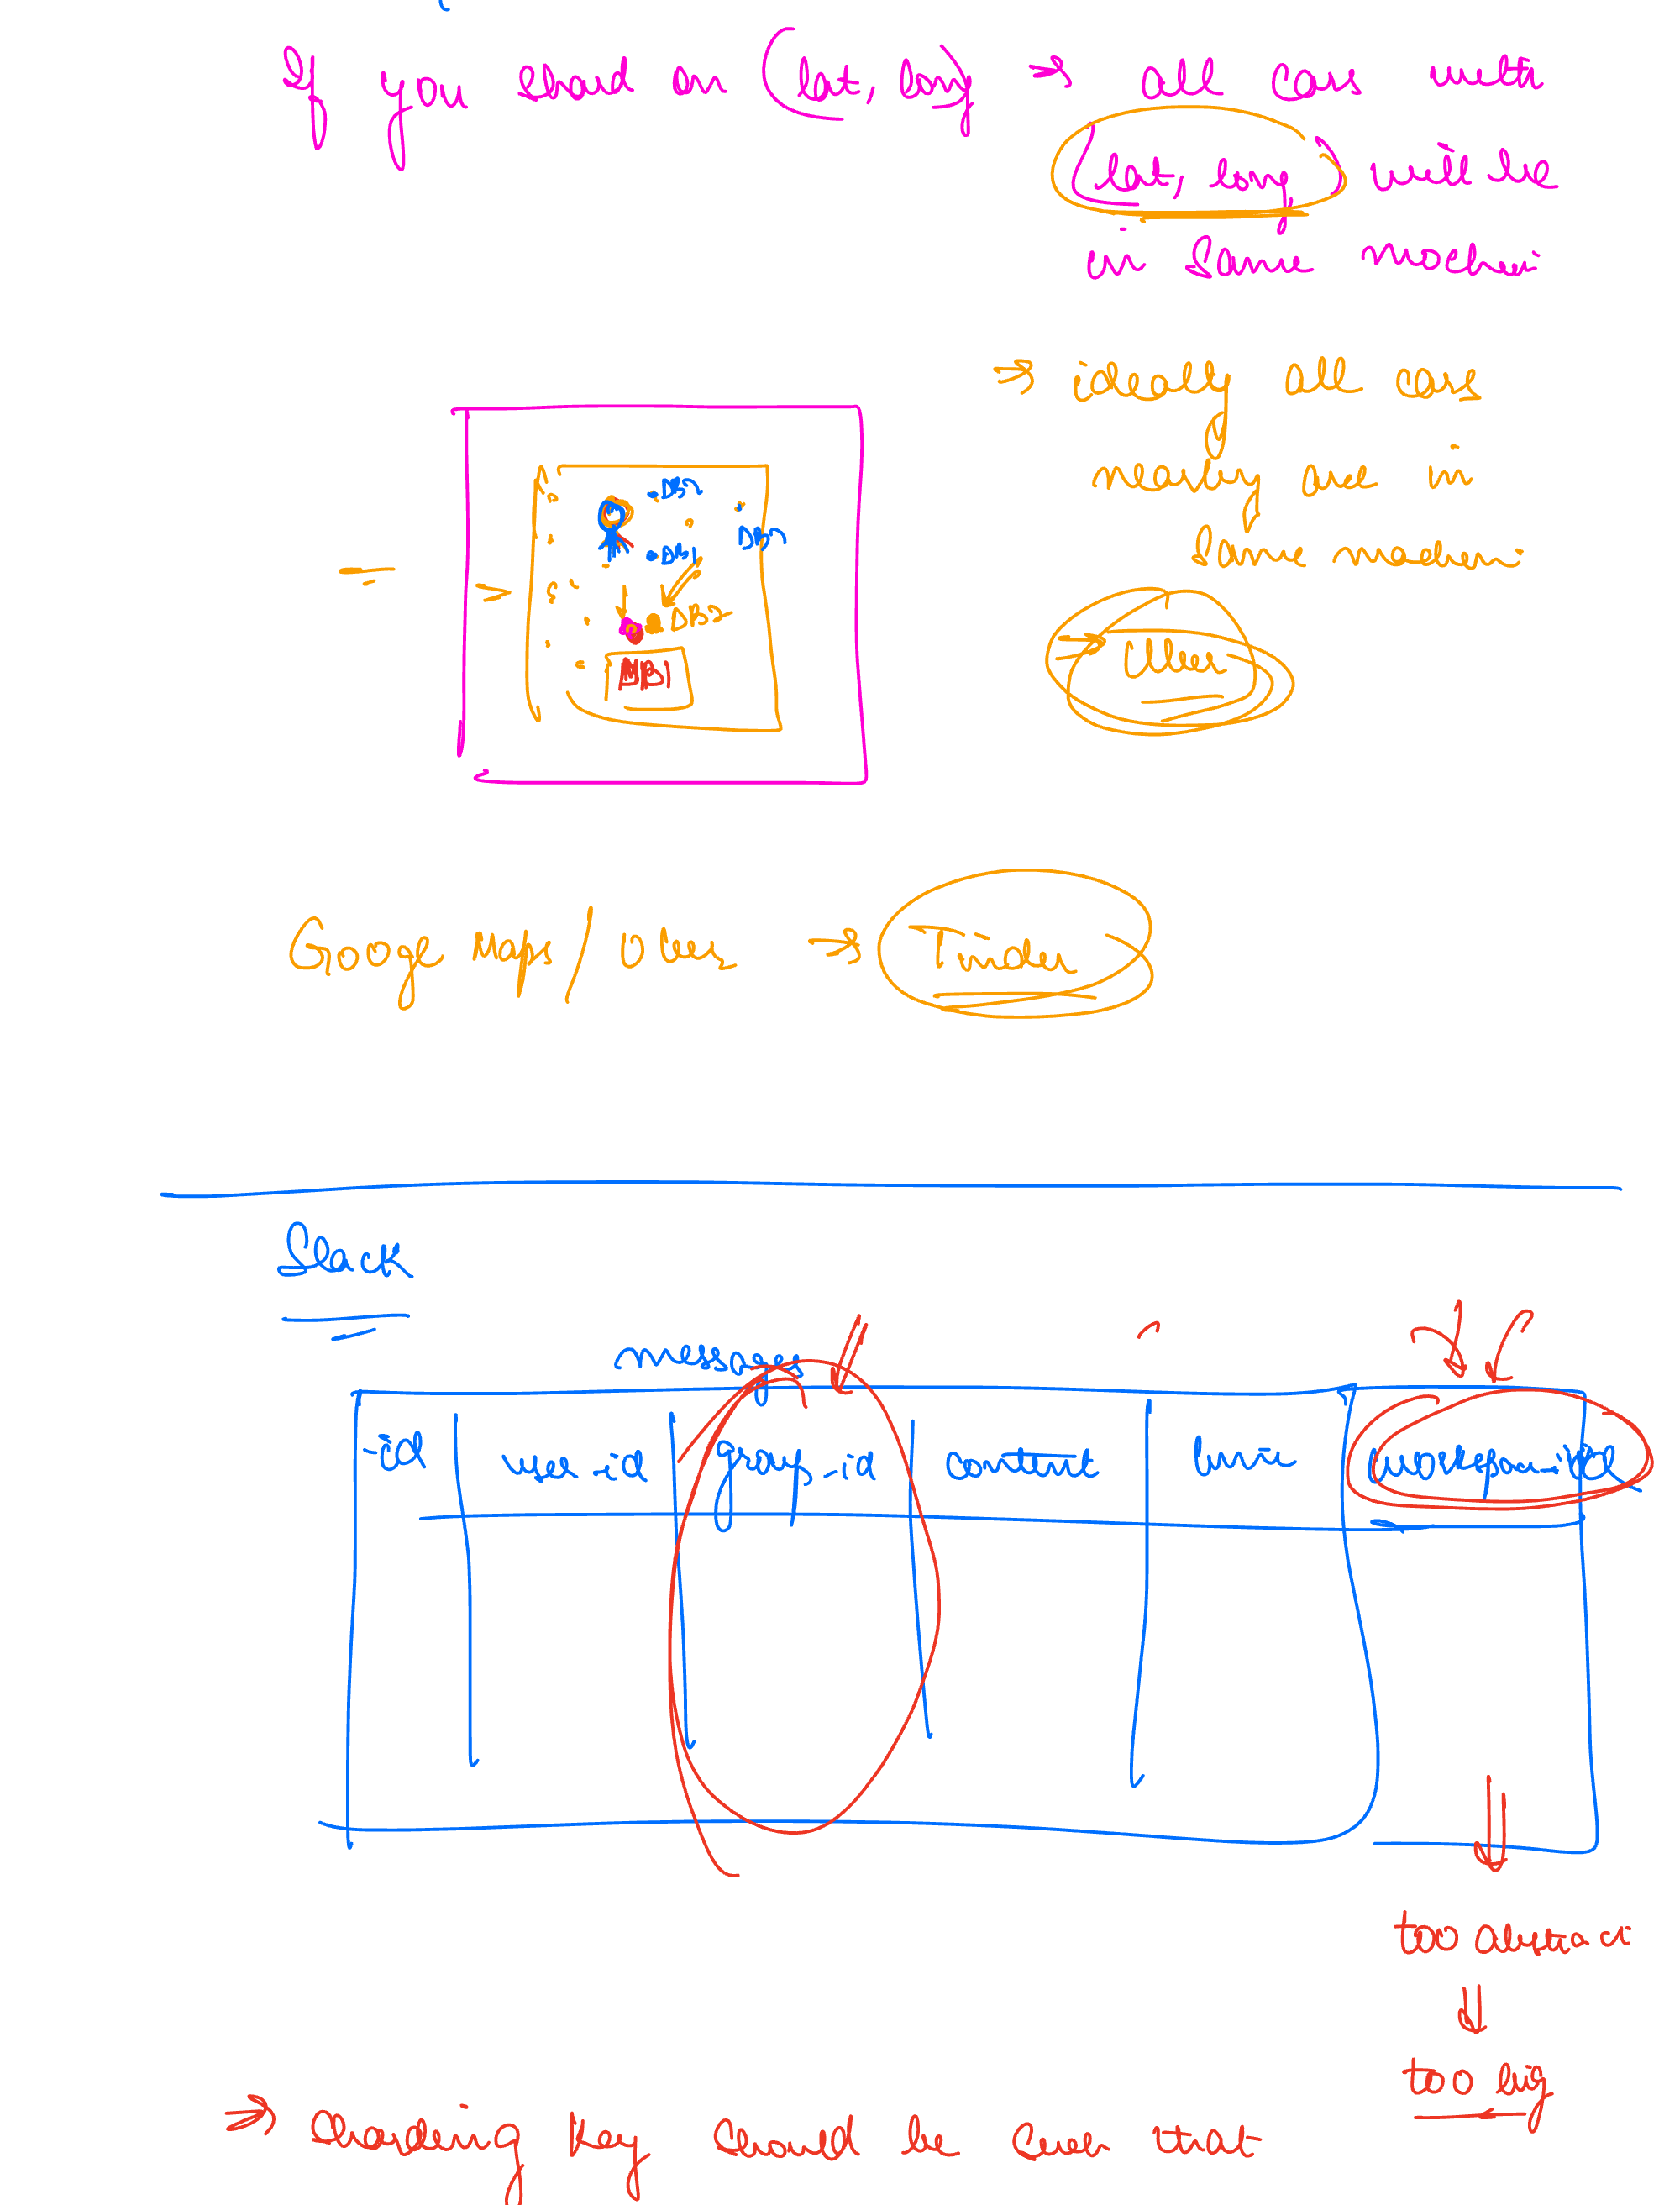 If you shard on (lat, long) → all cars with
(lat, long) will be
in same machine
⇒ ideally all cars
nearby are in
same machine
→ Uber
DB1
DB2
DB1
Google Maps / Uber → Tinder
Slack
messages
id user-id group-id content time workspace-id
too abstract
⇓
too big
⇒ Sharding key should be such that